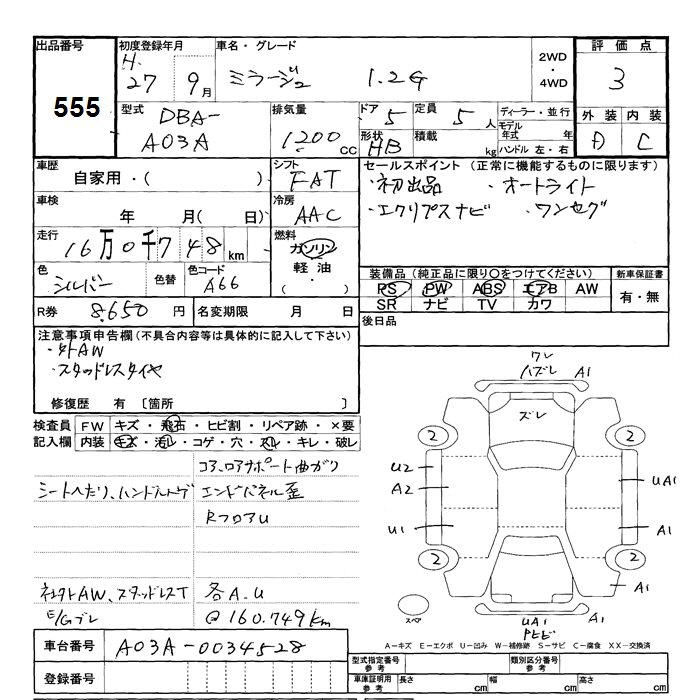 出品番号
555
初度登録年月
H.
27 9月
車名・グレード
ミラージュ 1.2G
2WD
・
4WD
評価点
3
型式
DBA-
A03A
排気量
1200 cc
ドア 5
定員 5人
形状 HB
積載 kg
ディーラー・並行
モデル年式 年
ハンドル 左・右
外装 内装
D C
車歴
自家用・( )
シフト
FAT
セールスポイント (正常に機能するものに限ります)
・初出品 ・オートライト
・エクリプスナビ ・ワンセグ
車検
年 月( 日)
冷房
AAC
走行
16万0千748km
燃料
ガソリン
軽油・
( )
色
シルバー
色替
色コード
A66
装備品(純正品に限り○をつけてください)
PS PW ABS エアB AW
SR ナビ TV カワ
新車保証書
有・無
R券 8,650円
名変期限 月 日
後日品
注意事項申告欄(不具合内容等は具体的に記入して下さい)
・外AW
・スタッドレスタイヤ
修復歴 有 〔箇所 〕
検査員
記入欄
FW キズ・飛石・ヒビ割・リペア跡・×要
内装 キズ・汚レ・コゲ・穴・スレ・キレ・破レ
コア、ロアサポート曲がり
シートへたり、ハンドルトゲ エンドパネル歪
RフロアU
社外AW、スタッドレスT 各A.U
E/Gブレ @160.749km
ワレ
ハズレ A1
ズレ
2 2
U2
A2
UA1
U1
A1
2 2
A1
スペア
UA1 A1
Pヒビ
A-キズ E-エクボ U-凹み W-補修跡 S-サビ C-腐食 XX-交換済
車台番号 A03A-0034528
登録番号
型式指定番号
参考
類別区分番号
参考
車庫証明用
参考
長さ cm 幅 cm 高さ cm